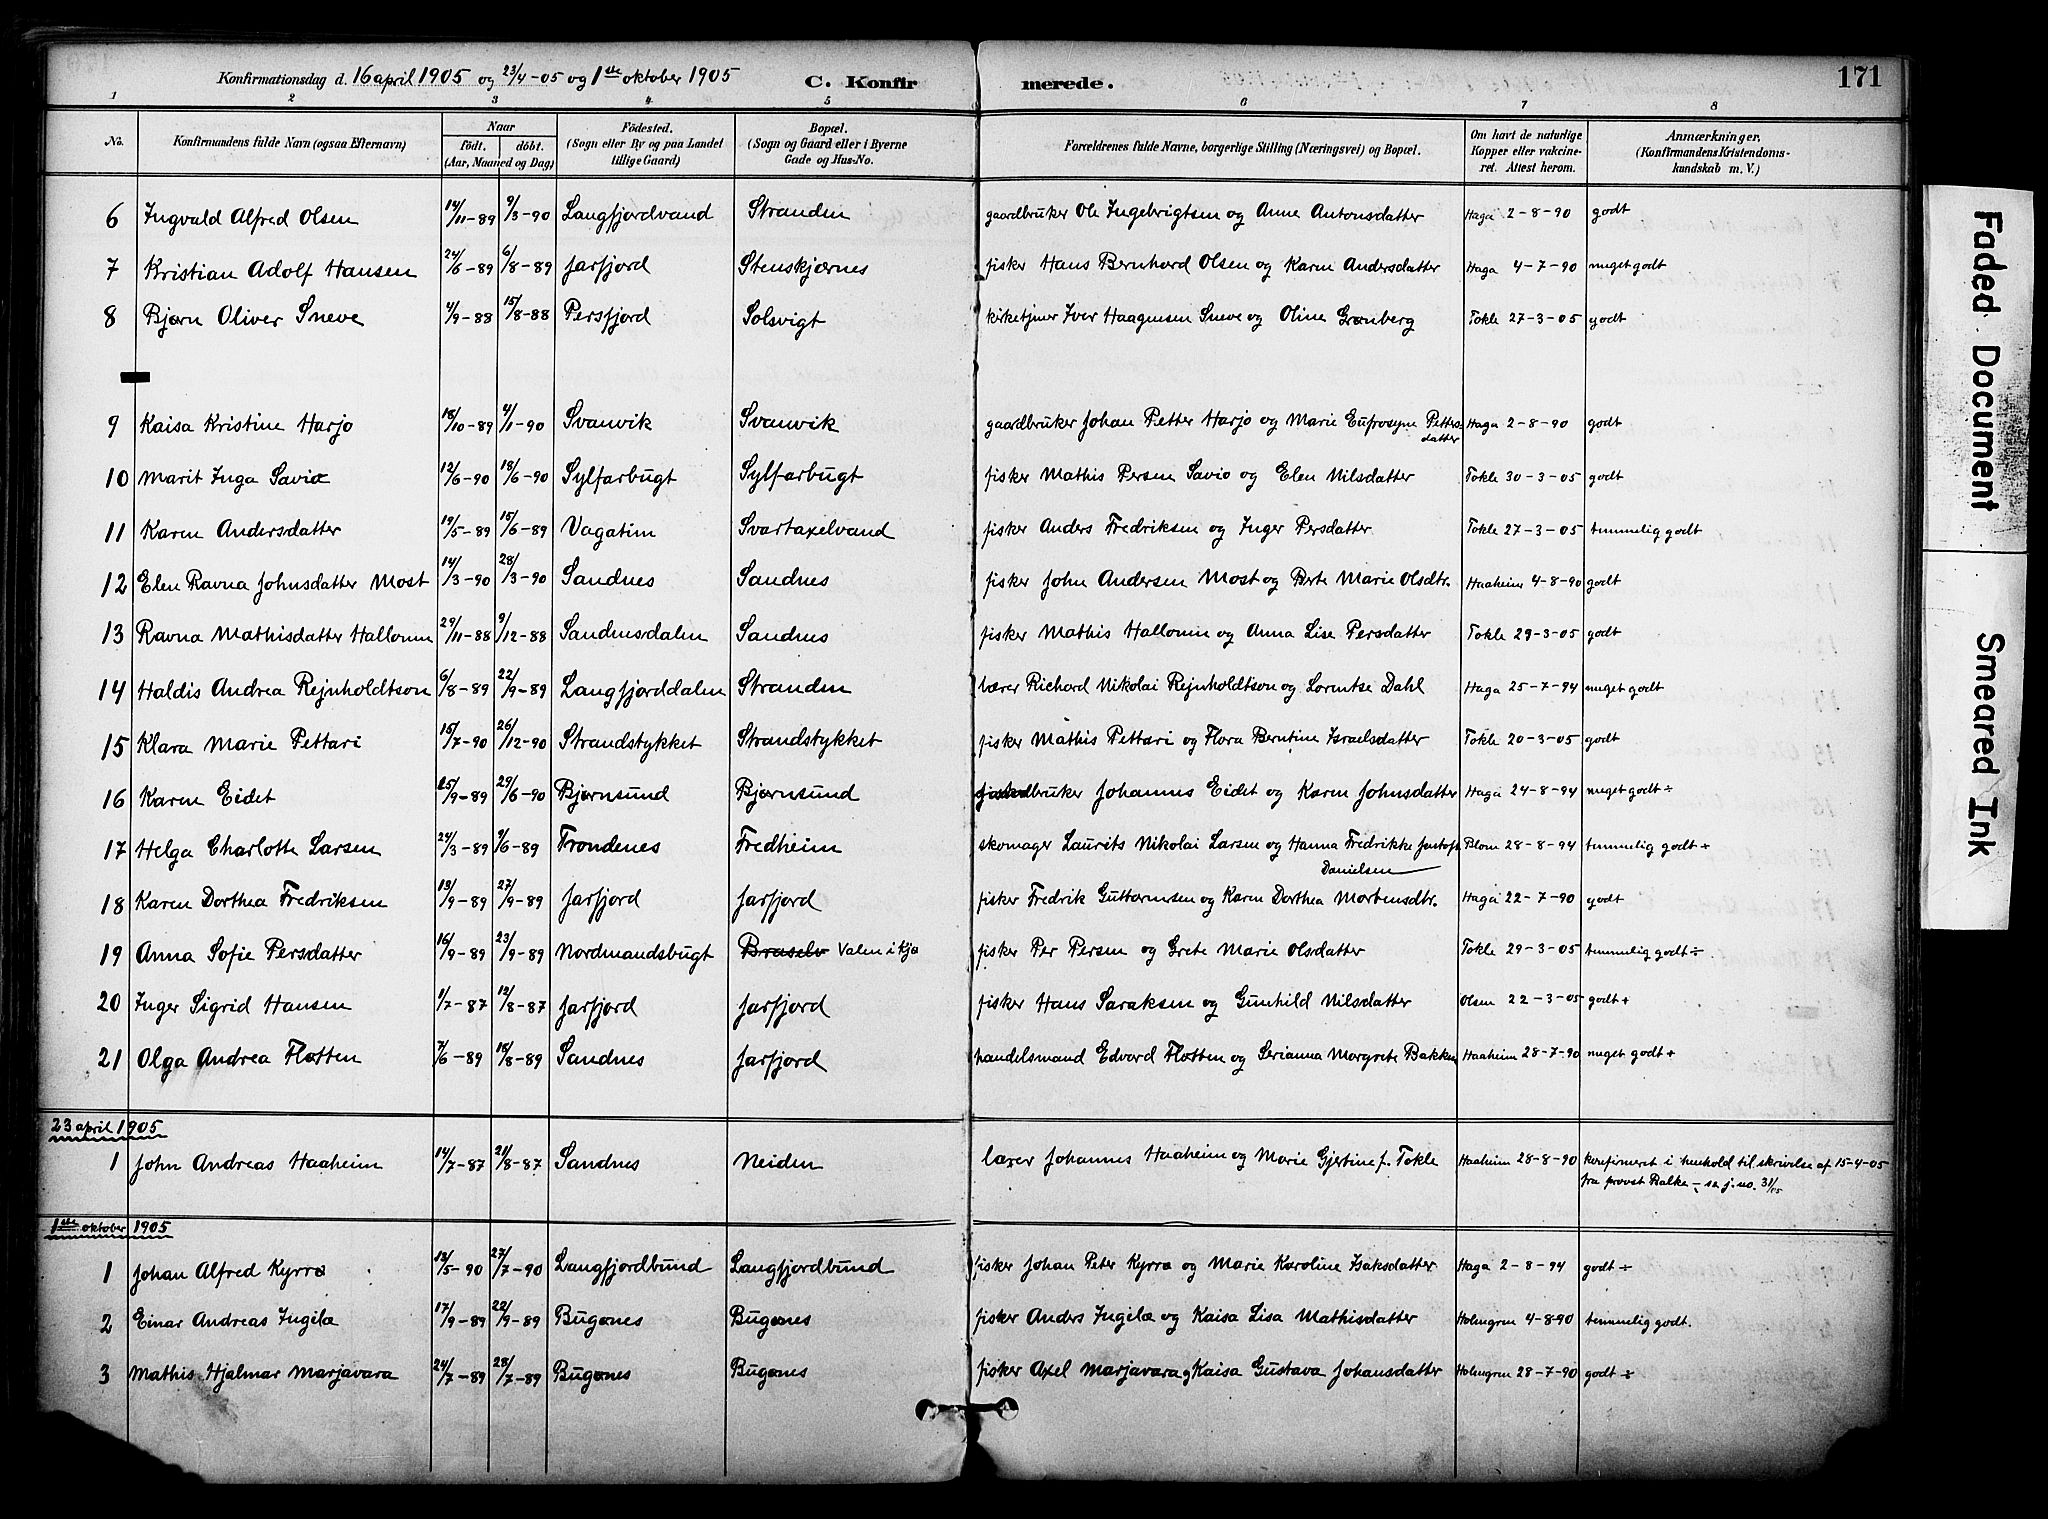 Konfirmationsdag d. 16 april 1905 og 23/4-05 og 1ste oktober 1905 C. Konfirmerede. 171
1 2 3 4 5 6 7 8
No. Konfirmandens fulde Navn (ogsaa Efternavn) Naar født. døbt. (Aar, Maaned og Dag) Födested. (Sogn eller By og paa Landet tillige Gaard) Bopæl. (Sogn og Gaard eller i Byerne Gade og Hus-No.) Forældrenes fulde Navne, borgerlige Stilling (Næringsvei) og Bopæl. Om havt de naturlige Kopper eller vakcineret. Attest herom. Anmærkninger, (Konfirmandens Kristendomskundskab m. V.)
6 Ingvald Alfred Olsen 14/11-89 9/3-90 Langfjordvand Stranden gaardbruker Ole Ingebrigtsen og Anne Antonsdatter Haga 2-8-90 godt
7 Kristian Adolf Hansen 24/6-89 6/8-89 Jarfjord Stenskjærnes fisker Hans Bernhard Olsen og Karen Andersdatter Haga 4-7-90 meget godt
8 Bjørn Oliver Sneve 4/9-88 15/8-88 Persfjord Solsvigt kirketjener Iver Haagensen Sneve og Oline Grønberg Tokle 27-3-05 godt
9 Kaisa Kristine Harjo 18/10-89 4/1-90 Svanvik Svanvik gaardbruker Johan Petter Harjo og Marie Eufrosyne Pettersdatter Haga 2-8-90 godt
10 Marit Inga Savio 12/6-90 18/6-90 Sylfarbugt Sylfarbugt fisker Mathis Persen Savio og Elen Nilsdatter Tokle 30-3-05 godt
11 Karen Andersdatter 19/5-89 15/6-89 Vagatim Svartaxelvand fisker Anders Fredriksen og Inger Persdatter Tokle 27-3-05 temmelig godt
12 Elen Ravna Johnsdatter Most 14/3-90 28/3-90 Sandnes Sandnes fisker John Andersen Most og Berte Marie Olsdtr. Haaheim 4-8-90 godt
13 Ravna Mathisdatter Hallonen 29/11-88 9/12-88 Sandnesdalen Sandnes fisker Mathis Hallonen og Anna Lise Persdatter Tokle 29-3-05 godt
14 Haldis Andrea Rejnholdtson 6/8-89 22/9-89 Langfjorddalen Stranden lærer Richard Nikolai Rejnholdtson og Lorentse Dahl Haga 25-7-94 meget godt
15 Klara Marie Pettari 15/7-90 26/12-90 Strandstykket Strandstykket fisker Mathis Pettari og Flora Berntine Israelsdatter Tokle 20-3-05 godt
16 Karen Eidet 25/9-89 29/6-90 Bjørnsund Bjørnsund bruker Johannes Eidet og Karen Johnsdatter Haga 24-8-94 meget godt ÷
17 Helga Charlotte Larsen 24/3-89 9/6-89 Trondenes Fredheim skomager Laurits Nikolai Larsen og Hanna Fredrikke Danielsen Blom 28-8-94 temmelig godt +
18 Karen Dorthea Fredriksen 13/9-89 27/9-89 Jarfjord Jarfjord fisker Fredrik Guttormsen og Karen Dorthea Mortensdtr. Haga 22-7-90 godt
19 Anna Sofie Persdatter 16/9-89 23/9-89 Nordmandsbugt Braselv Valen i Kjø fisker Per Persen og Grete Marie Olsdatter Tokle 29-3-05 temmelig godt ÷
20 Inger Sigrid Hansen 1/7-87 12/8-87 Jarfjord Jarfjord fisker Hans Saraksen og Gunhild Nilsdatter Olsen 22-3-05 godt +
21 Olga Andrea Flotten 7/6-89 18/8-89 Sandnes Jarfjord handelsmand Edvard Flotten og Serianna Margrete Bakken Haaheim 28-7-90 meget godt +
23 april 1905
1 John Andreas Haaheim 14/7-87 21/8-87 Sandnes Neiden lærer Johannes Haaheim og Marie Gjertine f. Tokle Haaheim 28-8-90 konfirmeret i henhold til skrivelse af 15-4-05
fra provst Balke - se j. no. 31/05
1ste oktober 1905
1 Johan Alfred Kyrrø 13/5-90 27/7-90 Langfjordbund Langfjordbund fisker Johan Peter Kyrrø og Marie Karoline Isaksdatter Haga 2-8-94 godt ÷
2 Einar Andreas Ingilæ 17/9-89 22/9-89 Bugønes Bugønes fisker Anders Ingilæ og Kaisa Lisa Mathisdatter Holmgren 4-8-90 temmelig godt.
3 Mathis Hjalmar Marjavara 24/7-89 28/7-89 Bugønes Bugønes fisker Axel Marjavara og Kaisa Gustava Johansdatter Holmgren 28-7-90 godt ÷
Faded Document
Smeared Ink